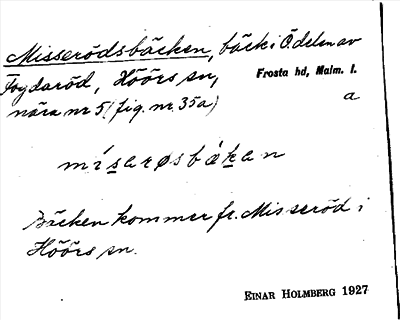 Misserödsbäcken, bäck i Ö delen av
Fogdaröd, Höörs sn,
Frosta hd, Malm. l.
nära nr 5 (fig. nr. 35a)
a
mísarøsbákan
Bäcken kommer fr. Misseröd i
Höörs sn.
EINAR HOLMBERG 1927